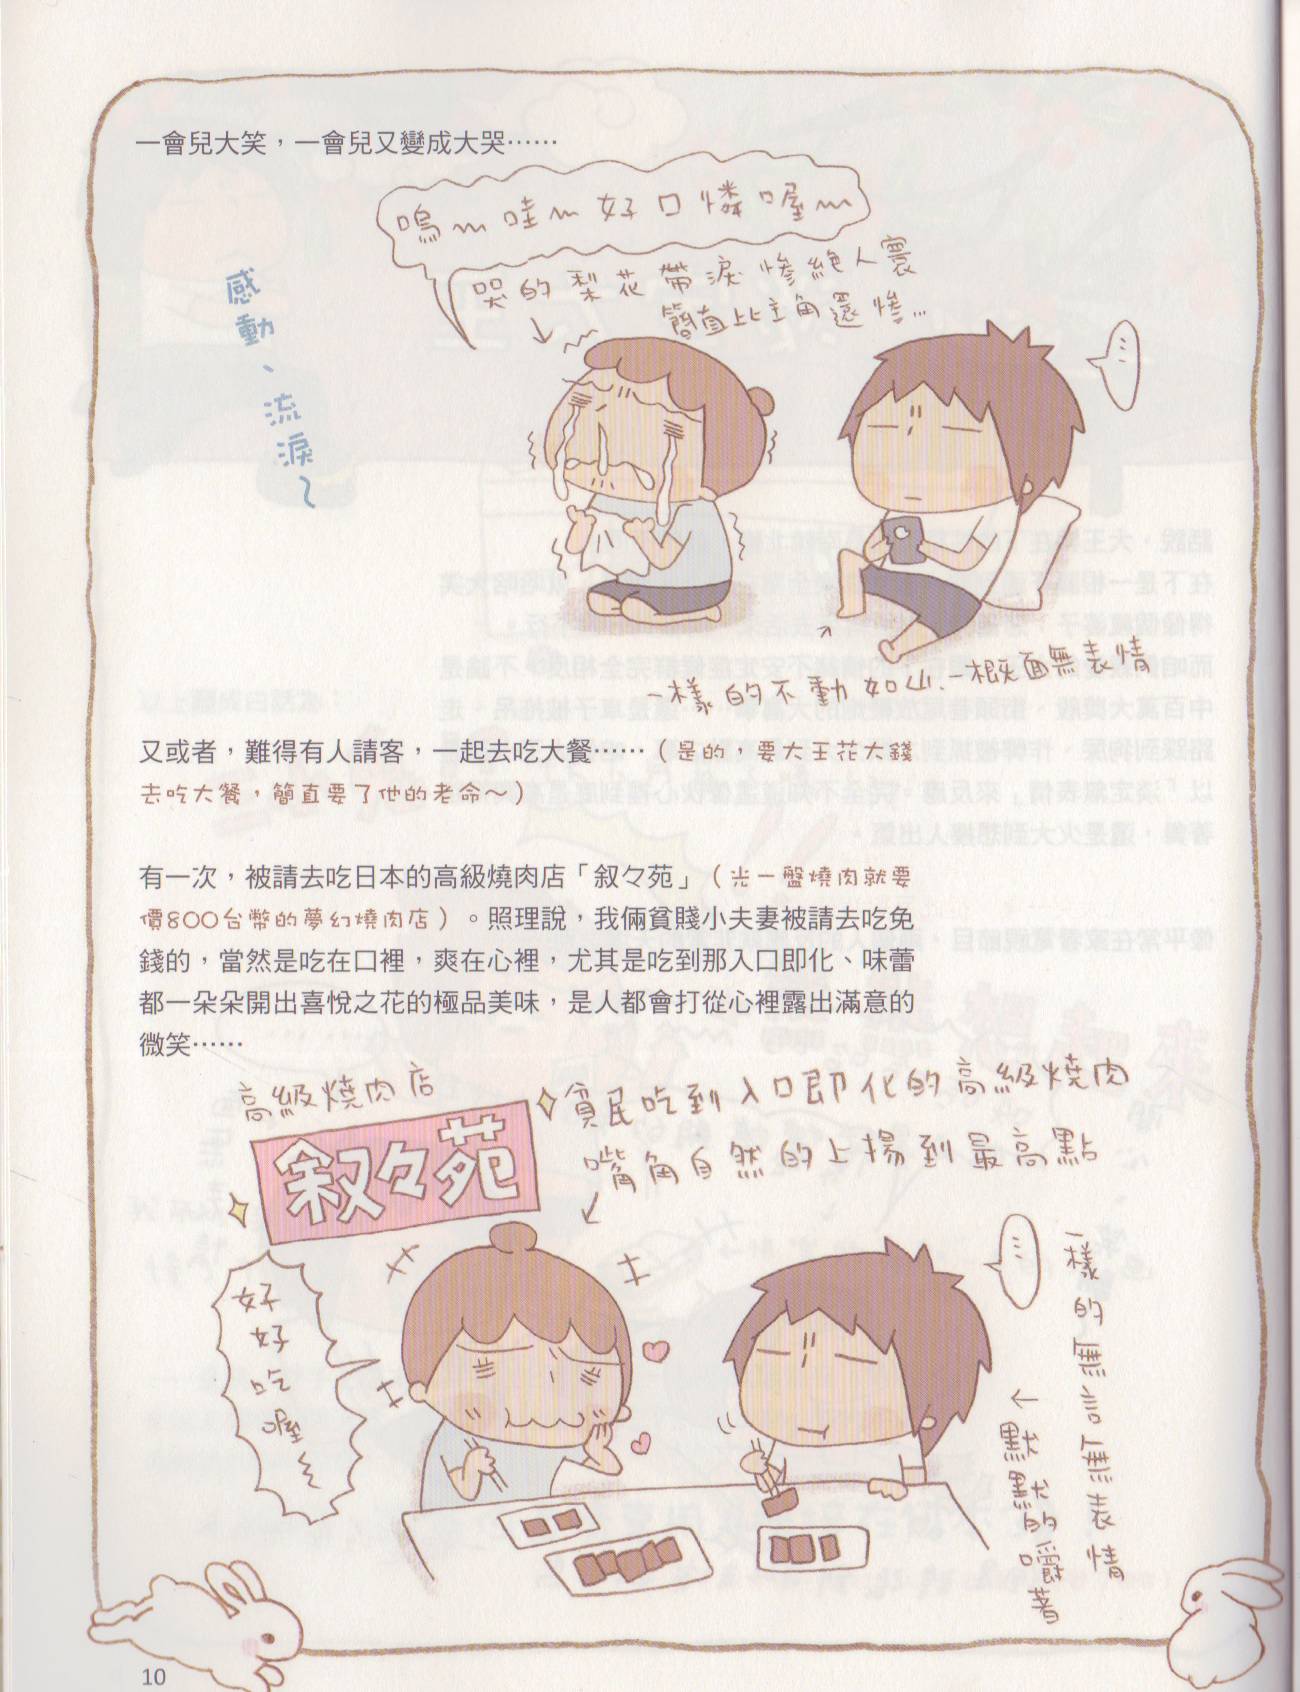 一會兒大笑，一會兒又變成大哭……
嗚～哇～好口憐喔～
哭的梨花帶淚慘絕人寰
簡直比主角還慘…
感動、流淚～
…
一樣的不動如山.一概面無表情
又或者，難得有人請客，一起去吃大餐……（是的，要大王花大錢
去吃大餐，簡直要了他的老命～）
有一次，被請去吃日本的高級燒肉店「叙々苑」（光一盤燒肉就要
價800台幣的夢幻燒肉店）。照理說，我倆貧賤小夫妻被請去吃免
錢的，當然是吃在口裡，爽在心裡，尤其是吃到那入口即化、味蕾
都一朵朵開出喜悅之花的極品美味，是人都會打從心裡露出滿意的
微笑……
高級燒肉店
叙々苑
貧民吃到入口即化的高級燒肉
嘴角自然的上揚到最高點
好好吃喔～
…
一樣的無言無表情
←默默的嚼著
10